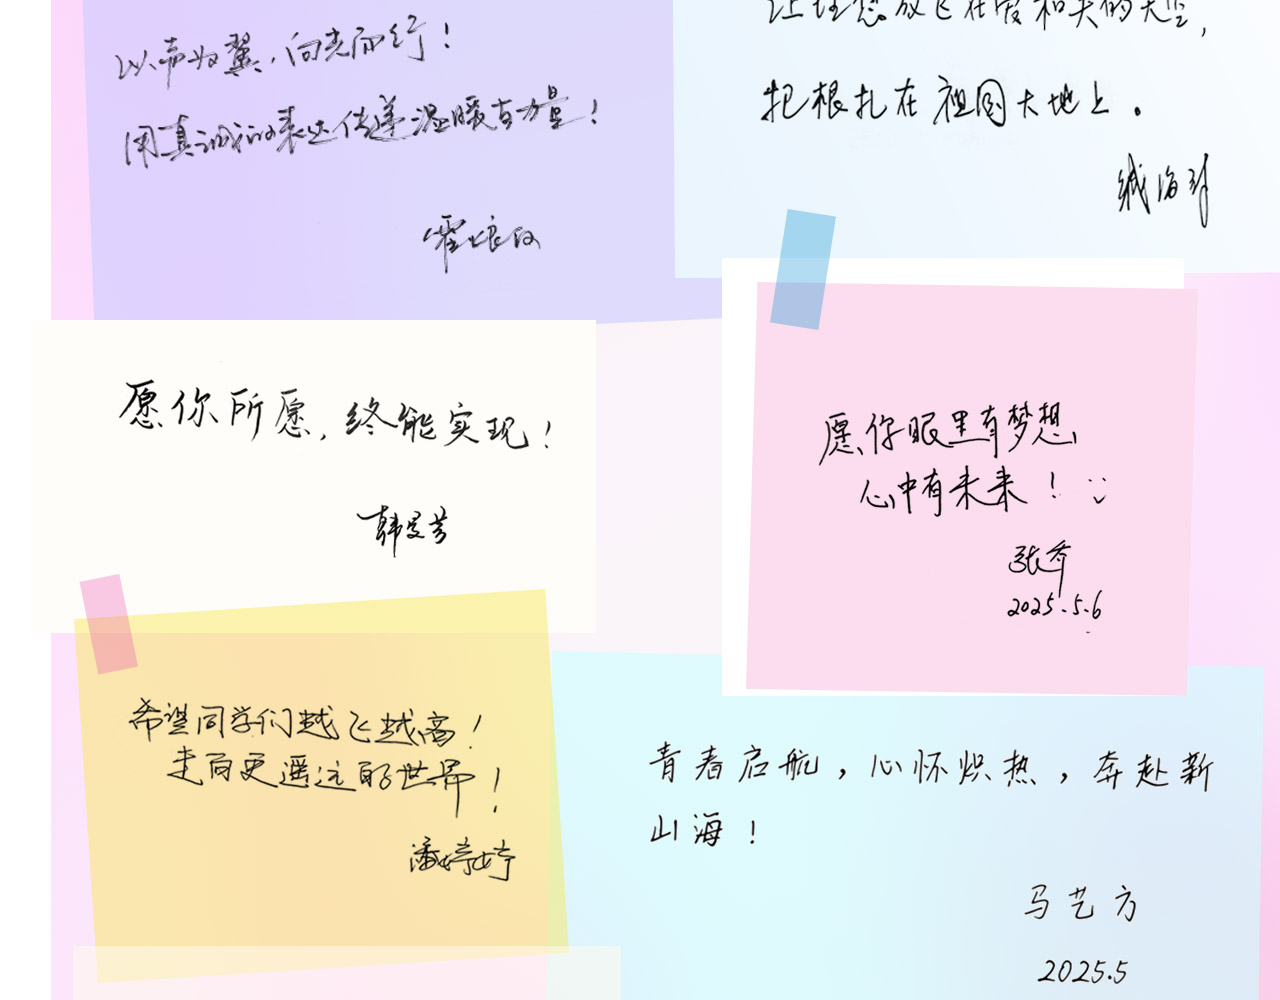 以声为翼，向光而行！
用真诚的表达传递温暖与力量！
让理想放飞在爱和美的天空，
把根扎在祖国大地上。
愿你所愿，终能实现！
愿你眼里有梦想
心中有未来！
张乔
2025.5.6
希望同学们越飞越高！
走向更遥远的世界！
潘婷婷
青春启航，心怀炽热，奔赴新
山海！
马艺方
2025.5